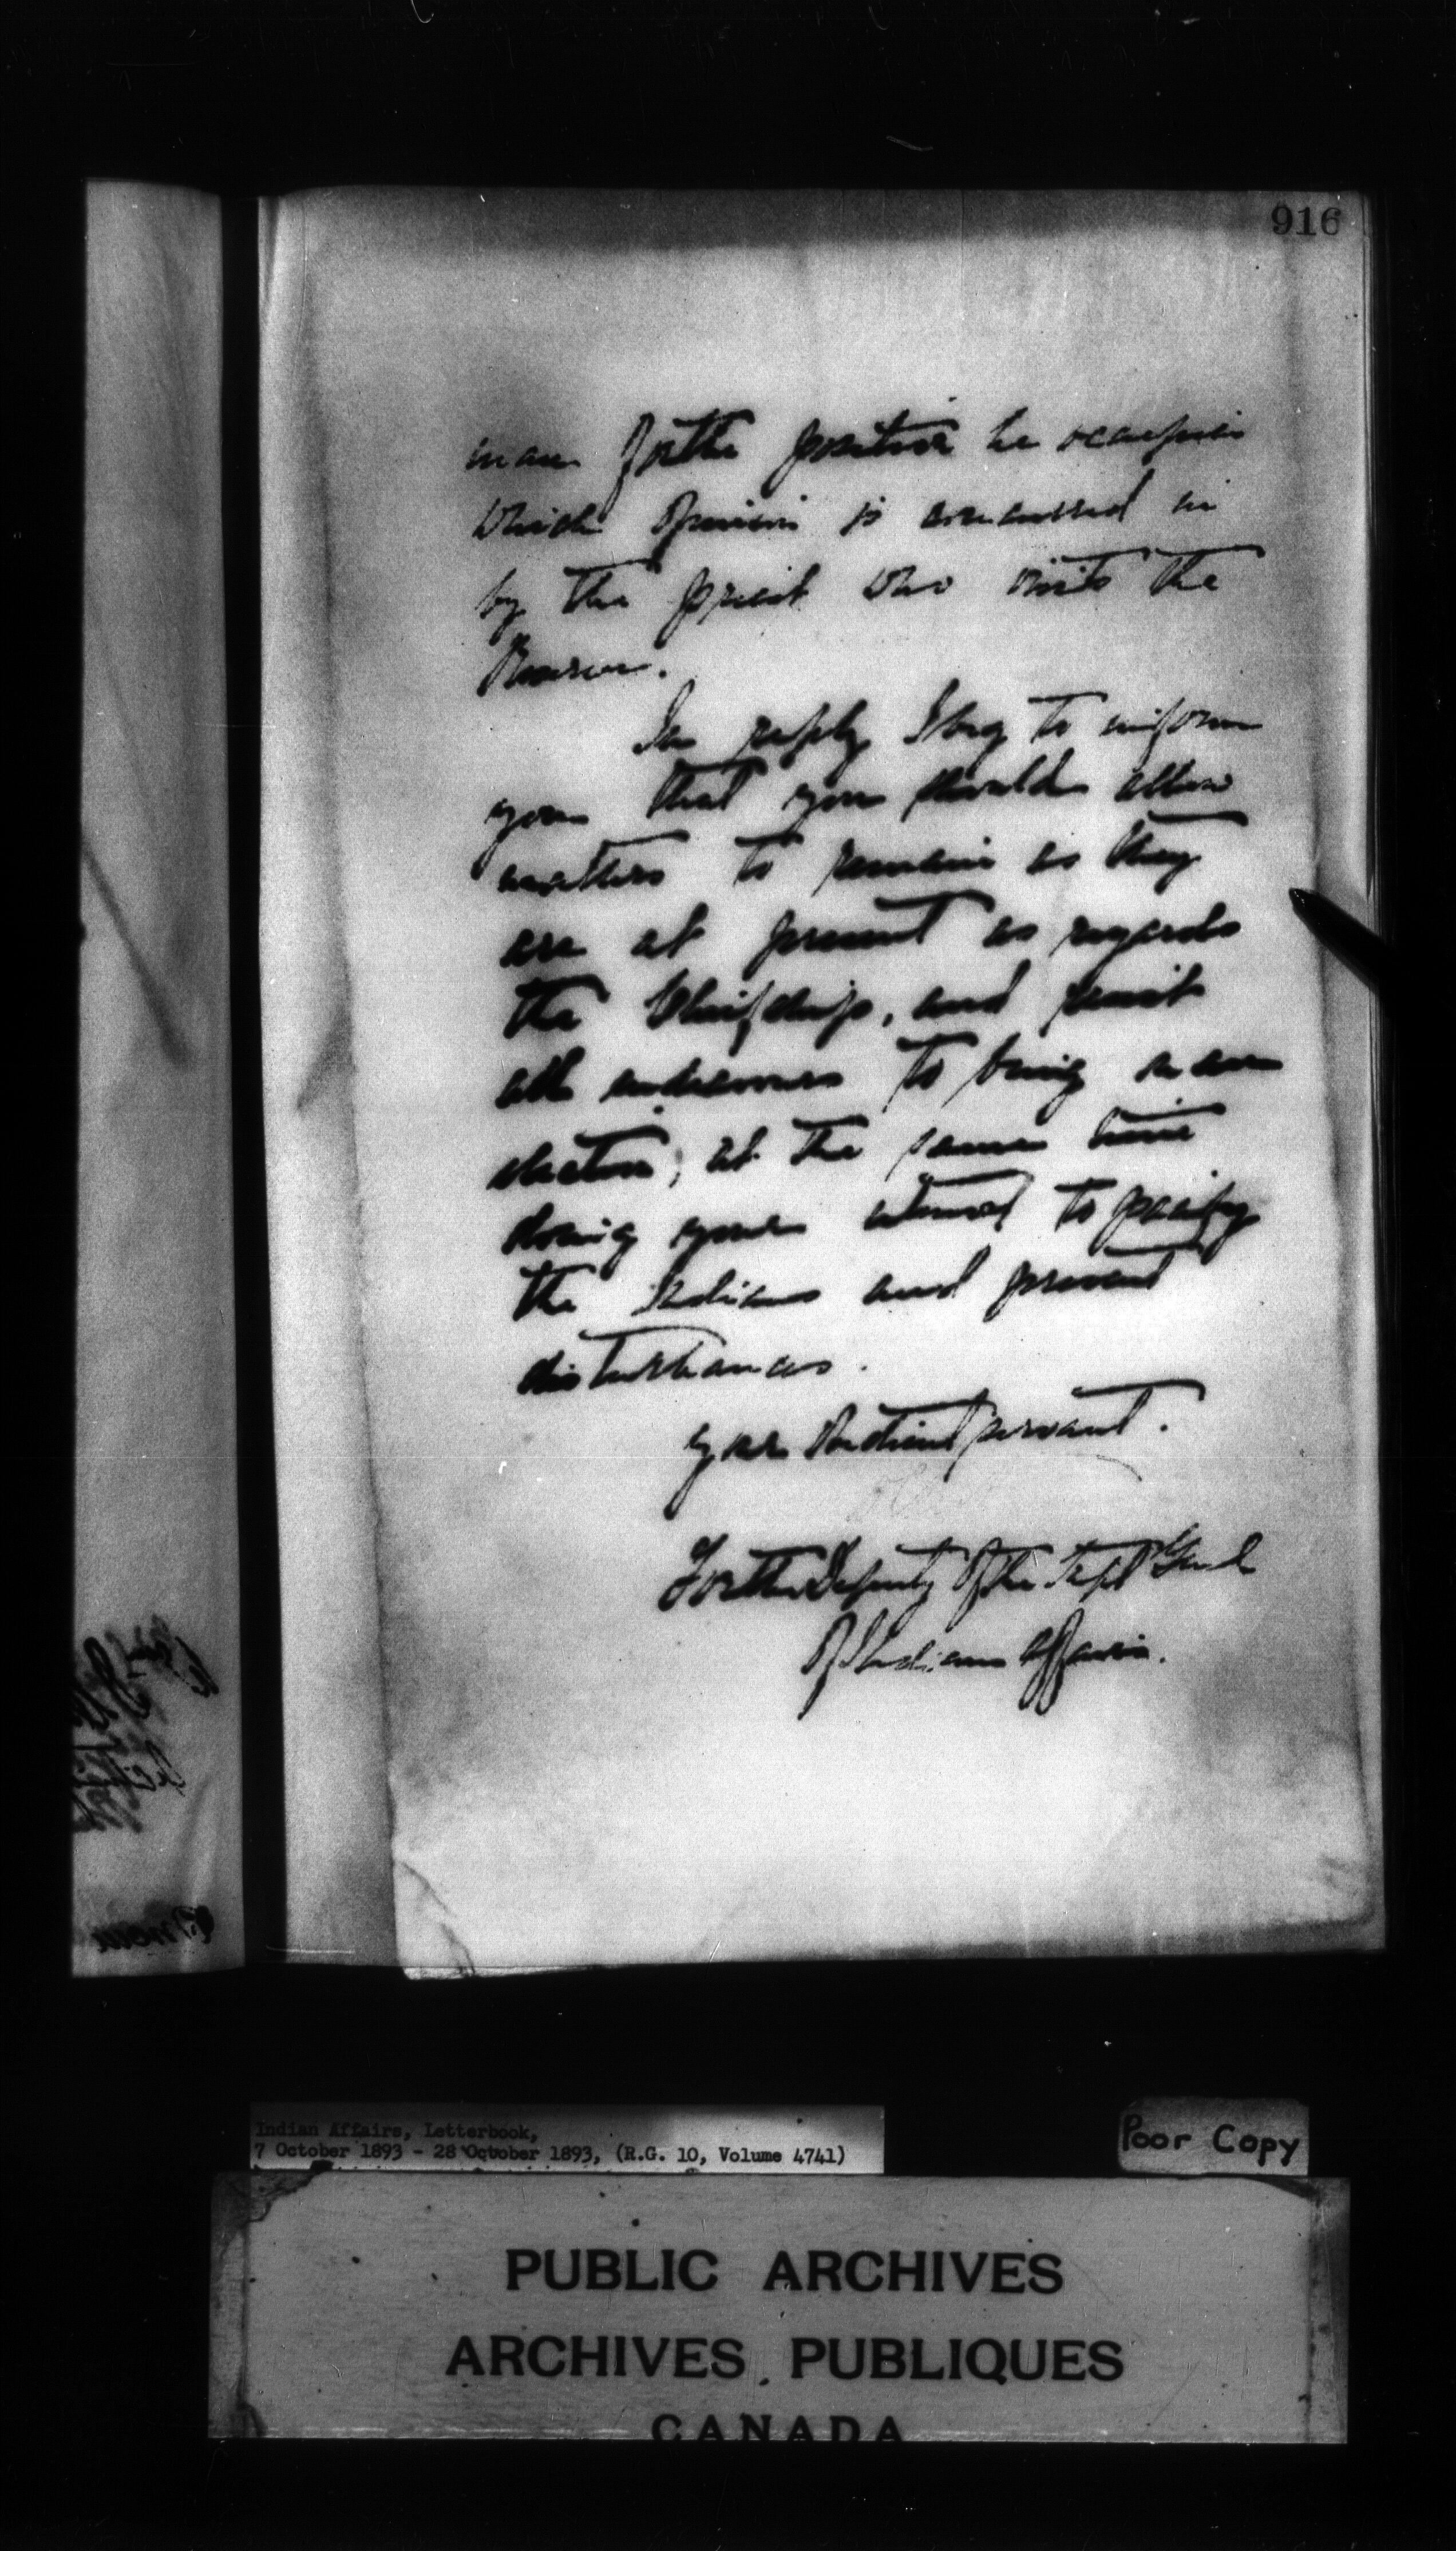 916
man for the position he occupies
which opinion is concurred in
by the priest who visits the
Reserve.
In reply I beg to inform
you that you should allow
matters to remain as they
are at present as regards
the Chiefship, and resist
all endeavours to bring on an
election; at the same time
doing your utmost to pacify
the Indians and prevent
disturbances.
Your obedient servant.
For the Deputy of the Supt Genl
Of Indian Affairs.
Indian Affairs, Letterbook,
7 October 1893 - 28 October 1893, (R.G. 10, Volume 4741)
Poor Copy
PUBLIC ARCHIVES
ARCHIVES PUBLIQUES
CANADA